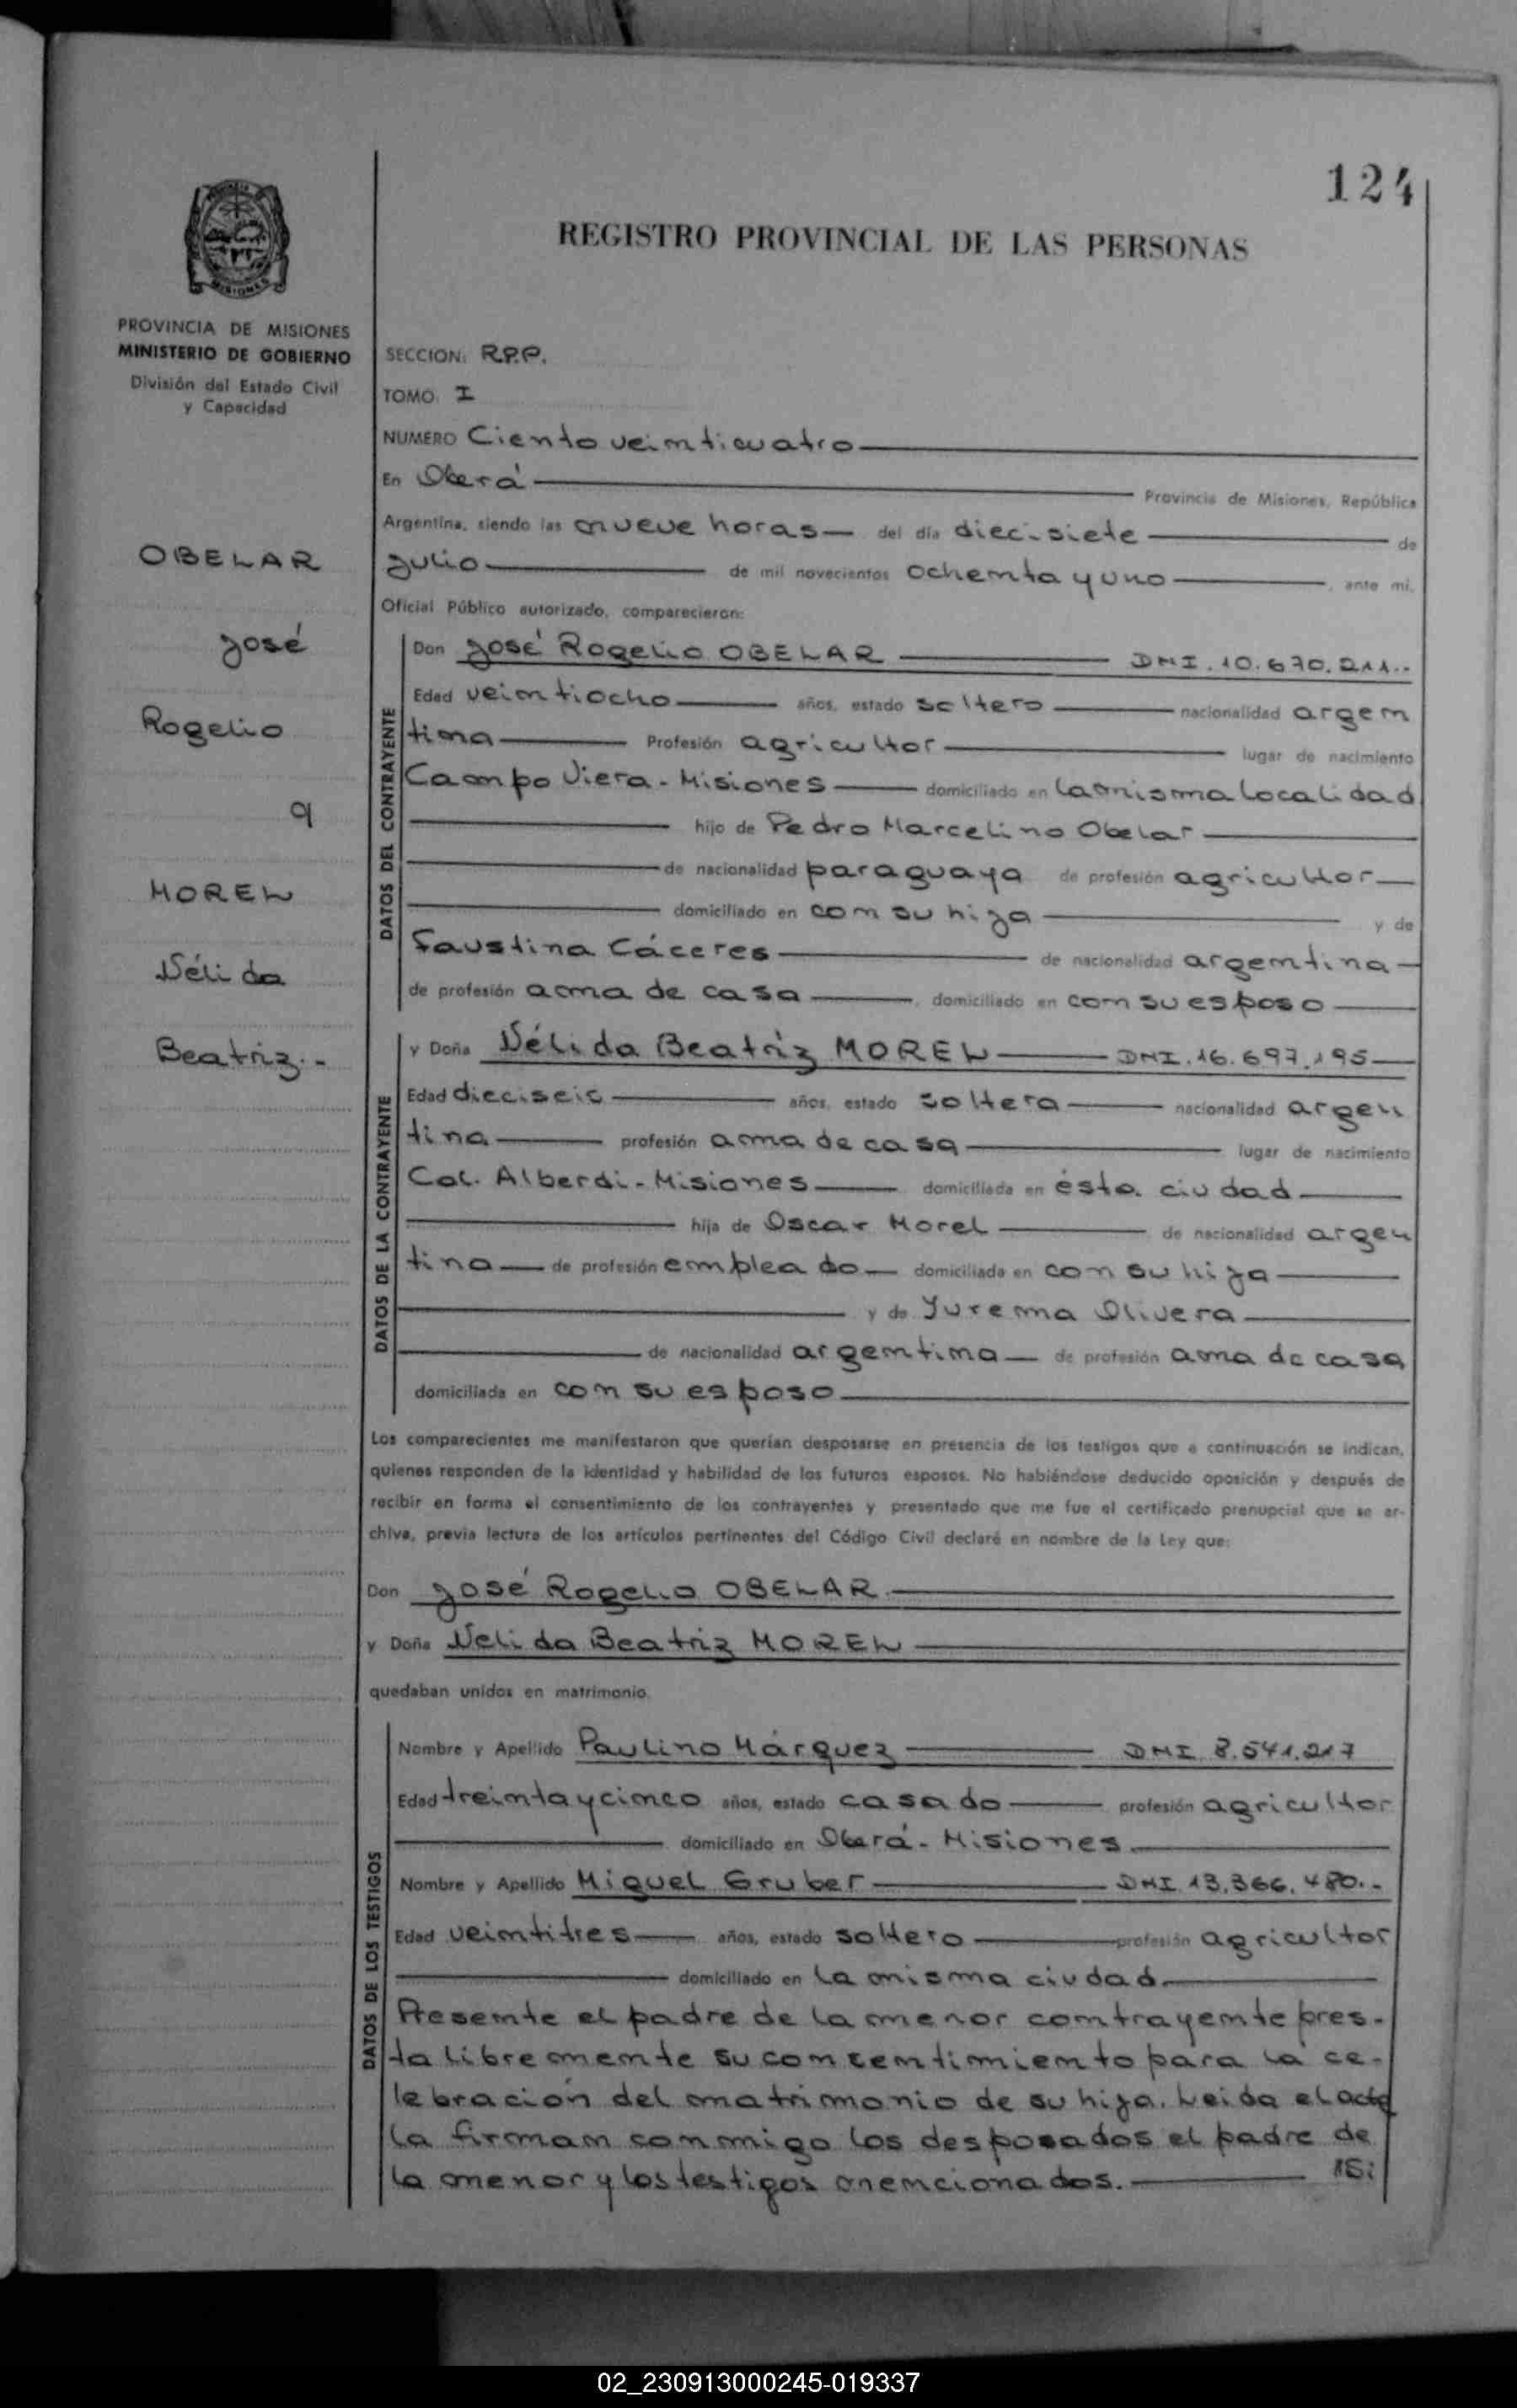 124
REGISTRO PROVINCIAL DE LAS PERSONAS
MISIONES
PROVINCIA DE MISIONES
MINISTERIO DE GOBIERNO
División del Estado Civil
y Capacidad
OBELAR
José
Rogelio
q
MOREL
Nélida
Beatriz.-
SECCION: R.P.P.
TOMO I
NUMERO Ciento veinticuatro
En Oberá Provincia de Misiones, República
Argentina, siendo las nueve horas del día diecisiete de
julio de mil novecientos ochenta y uno, ante mi,
Oficial Público autorizado, comparecieron:
DATOS DEL CONTRAYENTE
Don José Rogelio OBELAR DNI. 10.670.211.-
Edad veintiocho años, estado soltero nacionalidad argen
tina Profesión agricultor lugar de nacimiento
Campo Viera - Misiones domiciliado en la misma localidad
hijo de Pedro Marcelino Obelar
de nacionalidad paraguaya de profesión agricultor
domiciliado en con su hija y de
Faustina Cáceres de nacionalidad argentina
de profesión ama de casa, domiciliado en con su esposo
DATOS DE LA CONTRAYENTE
y Doña Nélida Beatriz MOREL DNI. 16.697.195
Edad dieciseis años, estado soltera nacionalidad argen
tina profesión ama de casa lugar de nacimiento
Col. Alberdi - Misiones domiciliada en ésta ciudad
hija de Oscar Morel de nacionalidad argen
tina de profesión empleado domiciliada en con su hija
y de Yurema Olivera
de nacionalidad argentina de profesión ama de casa
domiciliada en con su esposo
Los comparecientes me manifestaron que querían desposarse en presencia de los testigos que a continuación se indican,
quienes responden de la identidad y habilidad de los futuros esposos. No habiéndose deducido oposición y después de
recibir en forma el consentimiento de los contrayentes y presentado que me fue el certificado prenupcial que se ar-
chiva, previa lectura de los artículos pertinentes del Código Civil declaré en nombre de la Ley que:
Don José Rogelio OBELAR
y Doña Nelida Beatriz MOREL
quedaban unidos en matrimonio.
DATOS DE LOS TESTIGOS
Nombre y Apellido Paulino Márquez DNI 8.541.217
Edad treinta y cinco años, estado casado profesión agricultor
domiciliado en Oberá - Misiones
Nombre y Apellido Miguel Gruber DNI 13.366.480.-
Edad veintitres años, estado soltero profesión agricultor
domiciliado en la misma ciudad
Presente el padre de la menor contrayente pres-
ta libremente su consentimiento para la ce-
lebración del matrimonio de su hija. Leida el acta
la firman conmigo los desposados el padre de
la menor y los testigos mencionados.
02_230913000245-019337